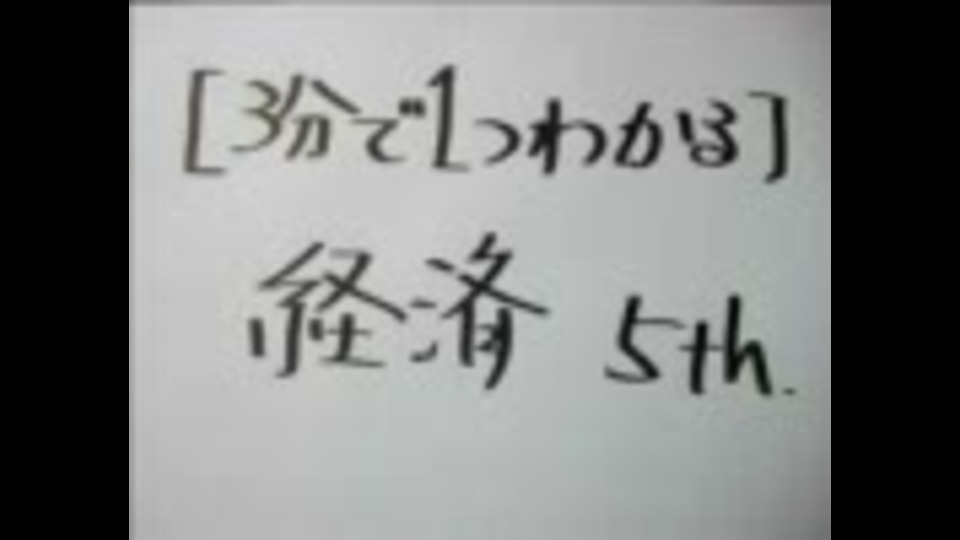 [3分で1つわかる]
経済 5th.